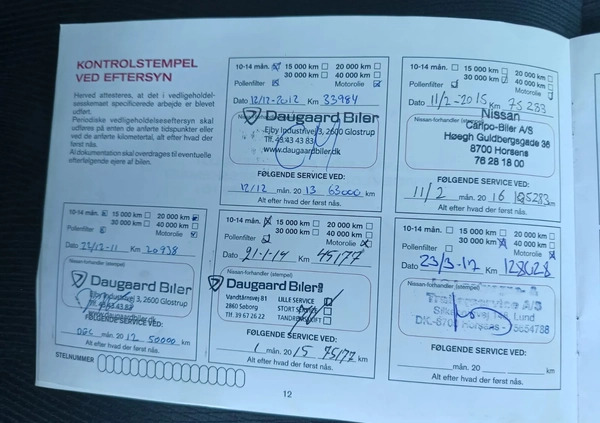 KONTROLSTEMPEL
VED EFTERSYN
Herved attesteres, at det i vedligeholdel-
sesskemaet specificerede arbejde er blevet
udført.
Periodiske vedligeholdelseseftersyn skal
udføres på enten de anførte tidspunkter eller
ved de anførte kilometertal, alt efter hvad der
først nås.
Al dokumentation skal overdrages til eventuelle
efterfølgende ejere af bilen.
10-14 mån. 15 000 km 20 000 km
30 000 km 40 000 km
Pollenfilter Motorolie
Dato 12/12-2012 Km 33984
Nissan-forhandler (stempel)
Daugaard Biler
Ejby Industrivej 3, 2600 Glostrup
Tlf. 43 43 43 83
www.daugaardbiler.dk
FØLGENDE SERVICE VED:
12/12 mån. 20 13 63000 km
Alt efter hvad der først nås.
10-14 mån. 15 000 km 20 000 km
30 000 km 40 000 km
Pollenfilter Motorolie
Dato 11/2-2015 Km 75 283
Nissan-forhandler (stempel)
Nissan
Caripo-Biler A/S
Høegh Guldbergsgade 36
8700 Horsens
76 28 18 00
FØLGENDE SERVICE VED:
11/2 mån. 20 16 105283 km
Alt efter hvad der først nås.
10-14 mån. 15 000 km 20 000 km
30 000 km 40 000 km
Pollenfilter Motorolie
Dato 22/12-11 Km 20938
Nissan-forhandler (stempel)
Daugaard Biler
Ejby Industrivej 3, 2600 Glostrup
Tlf. 43 43 43 83
www.daugaardbiler.dk
FØLGENDE SERVICE VED:
DEC mån. 20 12 50000 km
Alt efter hvad der først nås.
10-14 mån. 15 000 km 20 000 km
30 000 km 40 000 km
Pollenfilter Motorolie
Dato 21-1-14 Km 45177
Nissan-forhandler (stempel)
Daugaard Biler
Vandtårnsvej 81
2860 Søborg
Tlf. 39 67 26 22
LILLE SERVICE
STORT
FØLGENDE SERVICE VED:
1 mån. 20 15 75177 km
Alt efter hvad der først nås.
10-14 mån. 15 000 km 20 000 km
30 000 km 40 000 km
Pollenfilter Motorolie
Dato 23/3-17 Km 128028
Nissan-forhandler (stempel)
A/S
Lund
DK-8700 Horsens
FØLGENDE SERVICE VED:
mån. 20 km
Alt efter hvad der først nås.
STELNUMMER
12